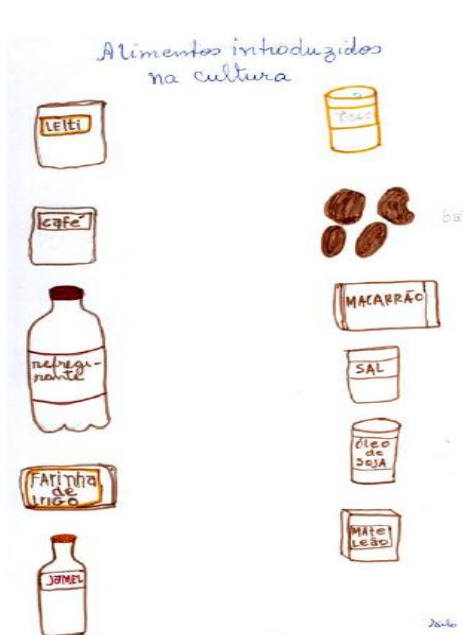 Alimentos introduzidos
na cultura
LEITI
café
refrige-
rante
FArinha
de
trIGO
JAMEL
MACARRÃO
SAL
óleo
de
SOJA
MAte
Leão